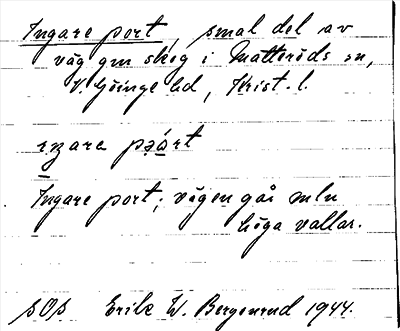 Ingare port, smal del av
väg gm skog i Matteröds sn,
V. Göinge hd, Krist. l.
ıŋara pǝárt
Ingare port; vägen går mln
höga vallar.
SOS Erik W. Bergenrud 1944.